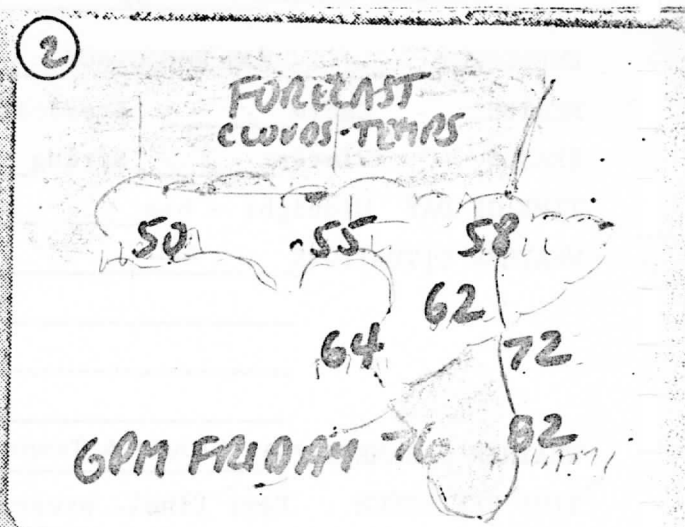 2
FORECAST
CLOUDS-TEMPS
50 55 58
62
64 72
82
6PM FRIDAY 76